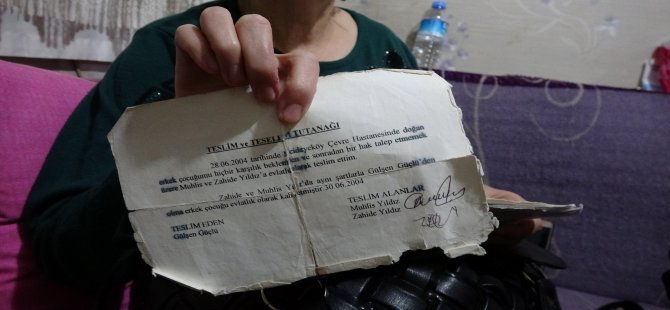 TESLİM ve TESELLÜM TUTANAĞI
28.06.2004 tarihinde Mecidiyeköy Çevre Hastanesinde doğan
erkek çocuğumu hiçbir karşılık beklemeden ve sonradan bir hak talep etmemek
üzere Muhlis ve Zahide Yıldız'a evlatlık olarak teslim ettim.
Zahide ve Muhlis Yıldız'da aynı şartlarla Gülşen Güçlü'den
olma erkek çocuğu evlatlık olarak kabul etmiştir 30.06.2004
TESLİM EDEN
Gülşen Güçlü
TESLİM ALANLAR
Muhlis Yıldız
Zahide Yıldız